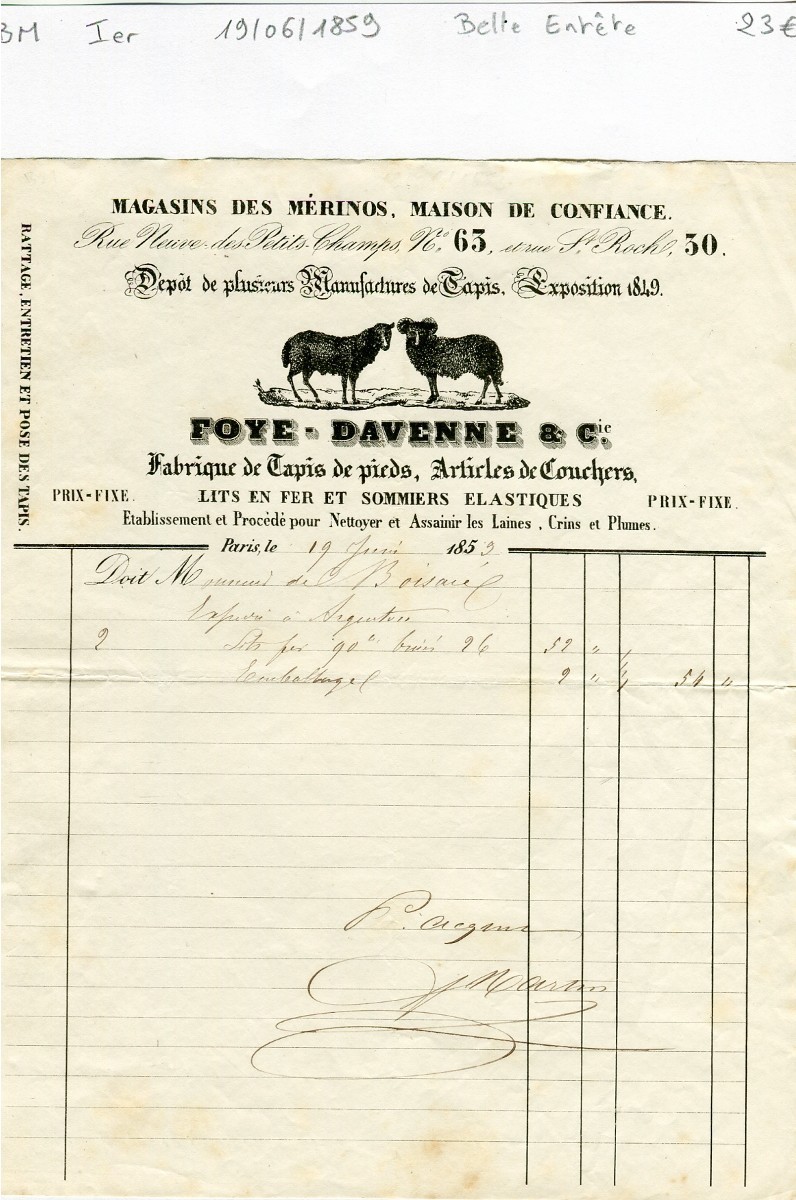 BM Ier 19/06/1859 Belle Entête 23€
MAGASINS DES MÉRINOS, MAISON DE CONFIANCE.
Rue Neuve-des-Petits-Champs, No. 63, et rue St. Roch, 30.
Dépôt de plusieurs Manufactures de Tapis, Exposition 1849.
RATTAGE, ENTRETIEN ET POSE DES TAPIS.
FOYE-DAVENNE & Cie.
Fabrique de Tapis de pieds, Articles de Couchers,
PRIX-FIXE. LITS EN FER ET SOMMIERS ELASTIQUES PRIX-FIXE.
Etablissement et Procédé pour Nettoyer et Assainir les Laines, Crins et Plumes.
Paris, le 19 Juin 1853
Doit Monsieur de
à Argentan
2 Lits fer 90 26 52 "
Emballage 2 " 54 "
P. acquit
Martin